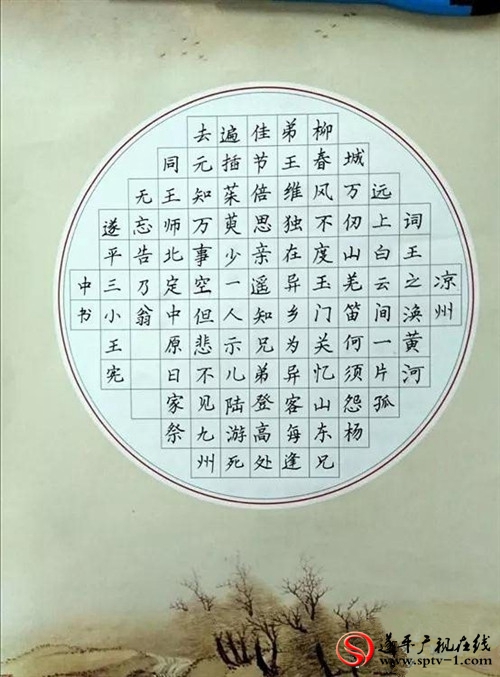 凉州
词王之涣黄河
远上白云间一片孤
城万仞山羌笛何须怨杨
柳春风不度玉门关忆山东兄
弟王维独在异乡为异客每逢
佳节倍思亲遥知兄弟登高处
遍插茱萸少一人示儿陆游死
去元知万事空但悲不见九州
同王师北定中原日家祭
无忘告乃翁
遂平三小王宪
中书
遂平广视在线
www.sptv-1.com